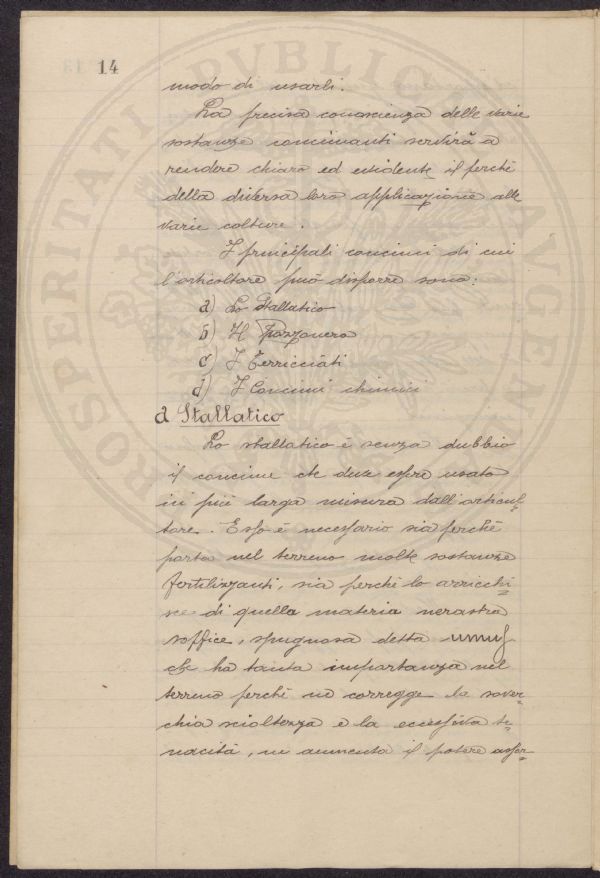 14
modo di usarli.
La precisa conoscienza delle varie
sostanze concimanti servirà a
rendere chiaro ed evidente il perchè
della diversa loro applicazione alle
varie colture.
I principali concimi di cui
l'orticoltore può disporre sono:
a) Lo Stallatico
b) Il Pozzonero
c) I Terricciati
d) I Concimi chimici
a Stallatico
Lo stallatico è senza dubbio
il concime che deve essere usato
in più larga misura dall'orticul-
tore. Esso è necessario sia perchè
porta nel terreno molte sostanze
fertilizzanti, sia perchè lo arricchi=
sce di quella materia nerastra
soffice, spugnosa detta umus
che ha tanta importanza nel
terreno perchè ne corregge la sover-
chia scioltezza e la eccessiva te-
nacità, ne aumenta il potere assor-
PROSPERITATI PVBLICAE AVGENDAE